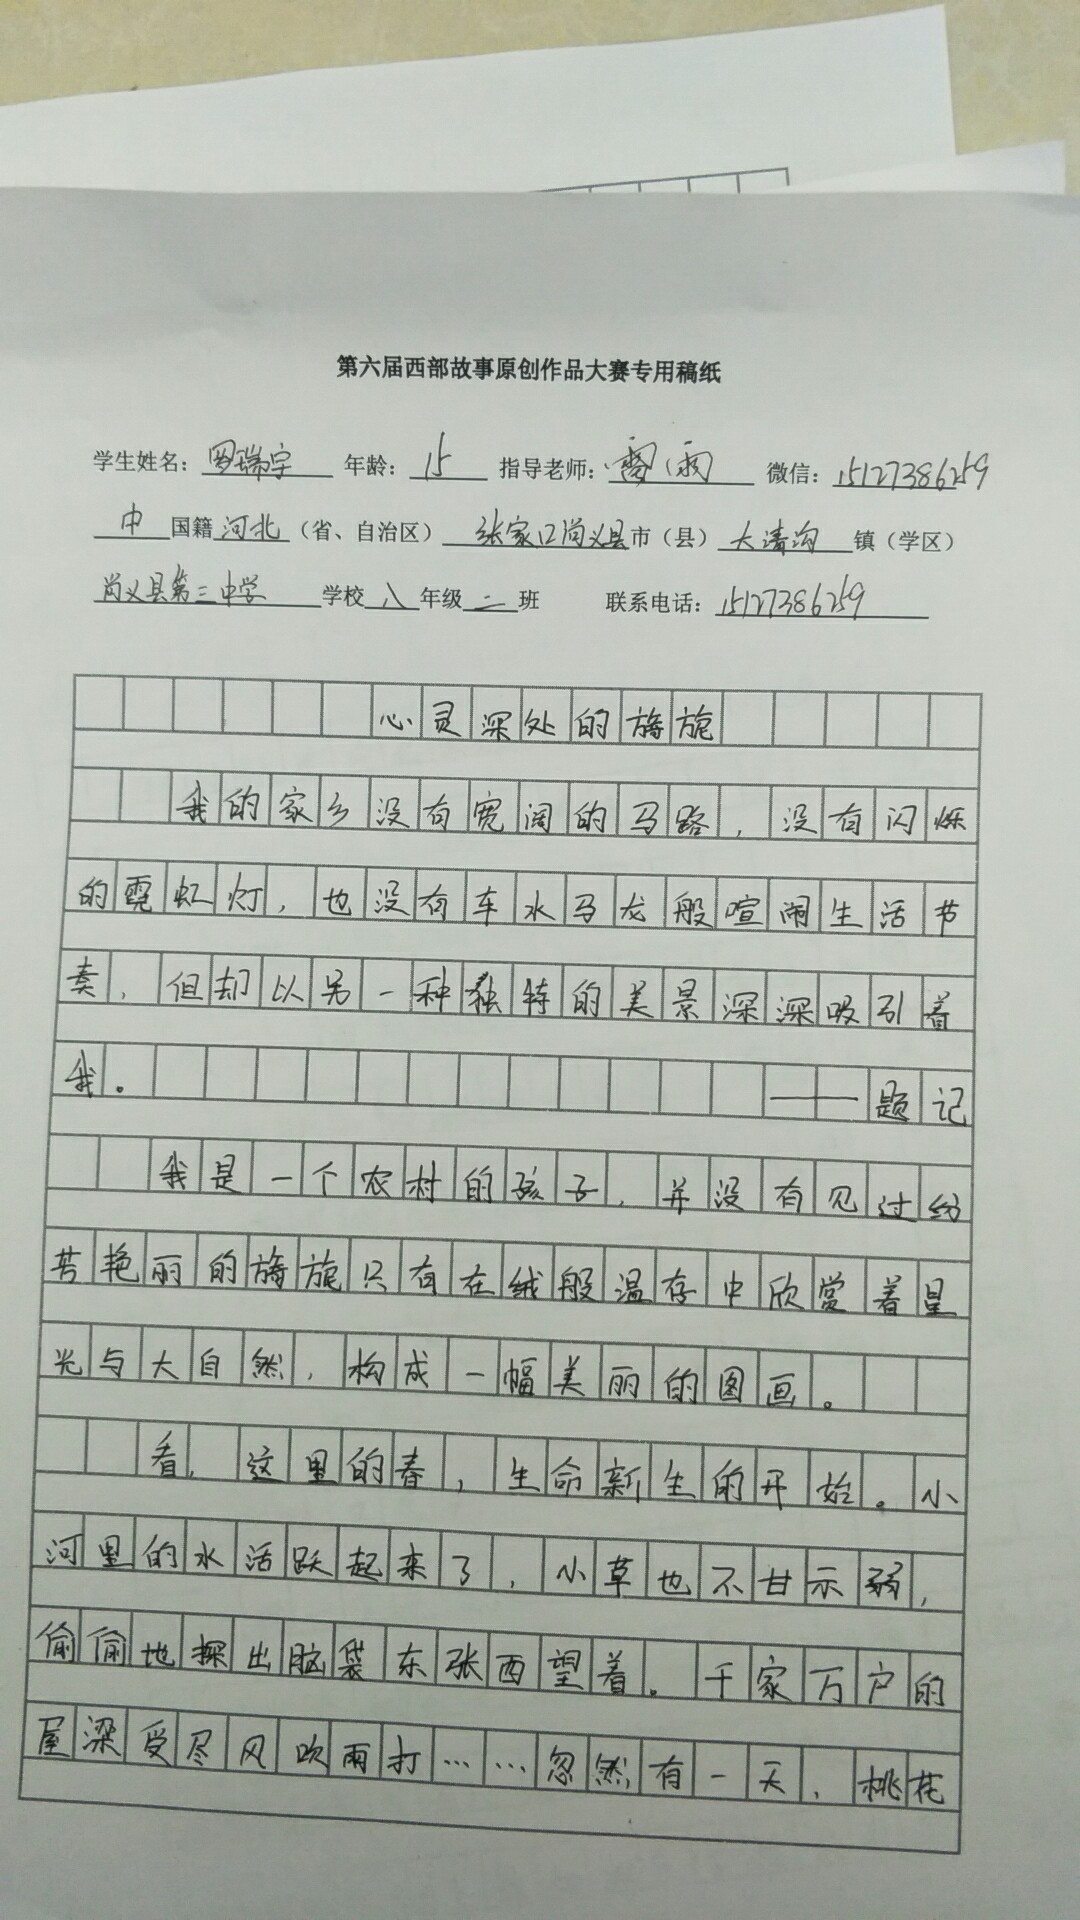 第六届西部故事原创作品大赛专用稿纸
学生姓名：罗瑞宇 年龄：15 指导老师：雷雨 微信：15127386259
中国籍河北（省、自治区）张家口尚义县市（县）大清沟镇（学区）
尚义县第三中学学校八年级二班 联系电话：15127386259
心灵深处的旖旎
我的家乡没有宽阔的马路，没有闪烁
的霓虹灯，也没有车水马龙般喧闹生活节
奏，但却以另一种独特的美景深深吸引着
我。——题记
我是一个农村的孩子，并没有见过纷
芳艳丽的旖旎只有在绒般温存中欣赏着星
光与大自然，构成一幅美丽的图画。
看，这里的春，生命新生的开始。小
河里的水活跃起来了，小草也不甘示弱，
偷偷地探出脑袋东张西望着。千家万户的
屋梁受尽风吹雨打……忽然有一天，桃花